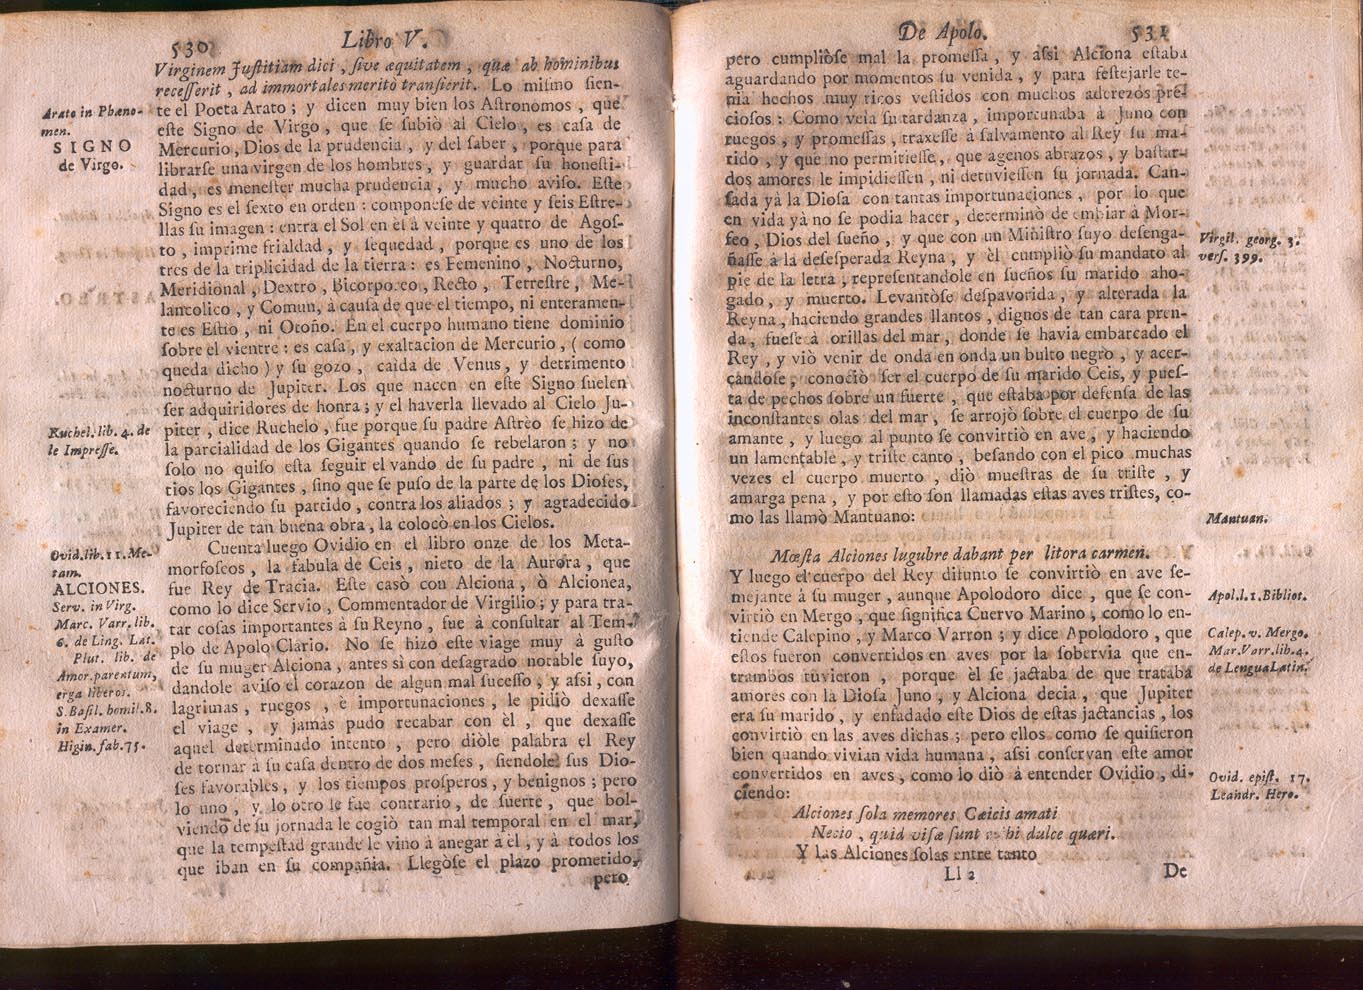 530 Libro V.
Virginem Juſtitiam dici , ſive æquitatem , quæ ab hominibus
receſſerit , ad immortales meritò tranſierit. Lo miſmo ſien-
te el Poeta Arato ; y dicen muy bien los Aſtronomos , que
eſte Signo de Virgo , que ſe ſubiò al Cielo , es caſa de
Mercurio , Dios de la prudencia , y del ſaber , porque para
librarſe una virgen de los hombres , y guardar ſu honeſti-
dad , es meneſter mucha prudencia , y mucho aviſo. Eſte
Signo es el ſexto en orden : componeſe de veinte y ſeis Eſtre-
llas ſu imagen : entra el Sol en èl à veinte y quatro de Agoſ-
to , imprime frialdad , y ſequedad , porque es uno de los
tres de la triplicidad de la tierra : es Femenino , Nocturno,
Meridional , Dextro , Bicorporeo , Recto , Terreſtre , Me-
lancolico , y Comun, à cauſa de que el tiempo, ni enteramen-
te es Eſtio , ni Otoño. En el cuerpo humano tiene dominio
ſobre el vientre : es caſa , y exaltacion de Mercurio , ( como
queda dicho ) y ſu gozo , caìda de Venus , y detrimento
nocturno de Jupiter. Los que nacen en eſte Signo ſuelen
ſer adquiridores de honra ; y el haverla llevado al Cielo Ju-
piter , dice Ruchelo , fue porque ſu padre Aſtreo ſe hizo de
la parcialidad de los Gigantes quando ſe rebelaron ; y no
ſolo no quiſo eſta ſeguir el vando de ſu padre , ni de ſus
tios los Gigantes , ſino que ſe puſo de la parte de los Dioſes,
favoreciendo ſu partido , contra los aliados ; y agradecido
Jupiter de tan buena obra , la colocò en los Cielos.
Cuenta luego Ovidio en el libro onze de los Meta-
morfoſeos , la fabula de Ceis , nieto de la Aurora , que
fue Rey de Tracia. Eſte casò con Alciona , ò Alcionea,
como lo dice Servio , Commentador de Virgilio ; y para tra-
tar coſas importantes à ſu Reyno , fue à conſultar al Tem-
plo de Apolo Clario. No ſe hizo eſte viage muy à guſto
de ſu muger Alciona , antes sì con deſagrado notable ſuyo,
dandole aviſo el corazon de algun mal ſuceſſo , y aſsi , con
lagrimas , ruegos , è importunaciones , le pidiò dexaſſe
el viage , y jamàs pudo recabar con èl , que dexaſſe
aquel determinado intento , pero diòle palabra el Rey
de tornar à ſu caſa dentro de dos meſes , ſiendole ſus Dio-
ſes favorables , y los tiempos proſperos , y benignos ; pero
lo uno , y lo otro le fue contrario , de ſuerte , que bol-
viendo de ſu jornada le cogiò tan mal temporal en el mar,
que la tempeſtad grande le vino à anegar à èl , y à todos los
que iban en ſu compañia. Llegòſe el plazo prometido,
pero
Arato in Phæno-
men.
SIGNO
de Virgo.
Ruchel. lib. 4. de
le Impreſſe.
Ovid. lib. 11. Me-
tam.
ALCIONES.
Serv. in Virg.
Marc. Varr. lib.
6. de Ling. Lat.
Plut. lib. de
Amor. parentum,
erga liberos.
S. Baſil. homil. 8.
in Examer.
Higin. fab. 75.
De Apolo. 531
pero cumpliòſe mal la promeſſa , y aſsi Alciona eſtaba
aguardando por momentos ſu venida , y para feſtejarle te-
nia hechos muy ricos veſtidos con muchos aderezos pre-
cioſos : Como veìa ſu tardanza , importunaba à Juno con
ruegos , y promeſſas , traxeſſe à ſalvamento al Rey ſu ma-
rido , y que no permitieſſe , que agenos abrazos , y baſtar-
dos amores le impidieſſen , ni detuvieſſen ſu jornada. Can-
ſada yà la Dioſa con tantas importunaciones , por lo que
en vida yà no ſe podia hacer , determinò de embiar à Mor-
feo , Dios del ſueño , y que con un Miniſtro ſuyo deſenga-
ñaſſe à la deſeſperada Reyna , y èl cumpliò ſu mandato al
pie de la letra , repreſentandole en ſueños ſu marido aho-
gado , y muerto. Levantòſe deſpavorida , y alterada la
Reyna , haciendo grandes llantos , dignos de tan cara pren-
da , fueſe à orillas del mar , donde ſe havia embarcado el
Rey , y viò venir de onda en onda un bulto negro , y acer-
candoſe , conociò ſer el cuerpo de ſu marido Ceis, y pueſ-
ta de pechos ſobre un fuerte , que eſtaba por defenſa de las
inconſtantes olas del mar , ſe arrojò ſobre el cuerpo de ſu
amante , y luego al punto ſe convirtiò en ave , y haciendo
un lamentable , y triſte canto , beſando con el pico muchas
vezes el cuerpo muerto , diò mueſtras de ſu triſte , y
amarga pena , y por eſto ſon llamadas eſtas aves triſtes, co-
mo las llamò Mantuano:
Mœſta Alciones lugubre dabant per litora carmen.
Y luego el cuerpo del Rey difunto ſe convirtiò en ave ſe-
mejante à ſu muger , aunque Apolodoro dice , que ſe con-
virtiò en Mergo , que ſignifica Cuervo Marino , como lo en-
tiende Calepino , y Marco Varron ; y dice Apolodoro , que
eſtos fueron convertidos en aves por la ſobervia que en-
trambos tuvieron , porque èl ſe jactaba de que trataba
amores con la Dioſa Juno , y Alciona decia , que Jupiter
era ſu marido , y enfadado eſte Dios de eſtas jactancias , los
convirtiò en las aves dichas ; pero ellos como ſe quiſieron
bien quando vivian vida humana , aſsi conſervan eſte amor
convertidos en aves , como lo diò à entender Ovidio , di-
ciendo:
Alciones ſola memores Cæicis amati
Necio , quid viſæ ſunt mihi dulce quæri.
Y las Alciones ſolas entre tanto
Ll 2 De
Virgil. georg. 3.
verſ. 399.
Mantuan.
Apol. l. 1. Bibliot.
Calep. v. Mergo.
Mar. Varr. lib. 4.
de Lengua Latin.
Ovid. epiſt. 17.
Leandr. Hero.